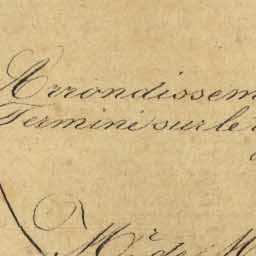 Arrondissem
Terminé sur le
Mr de M